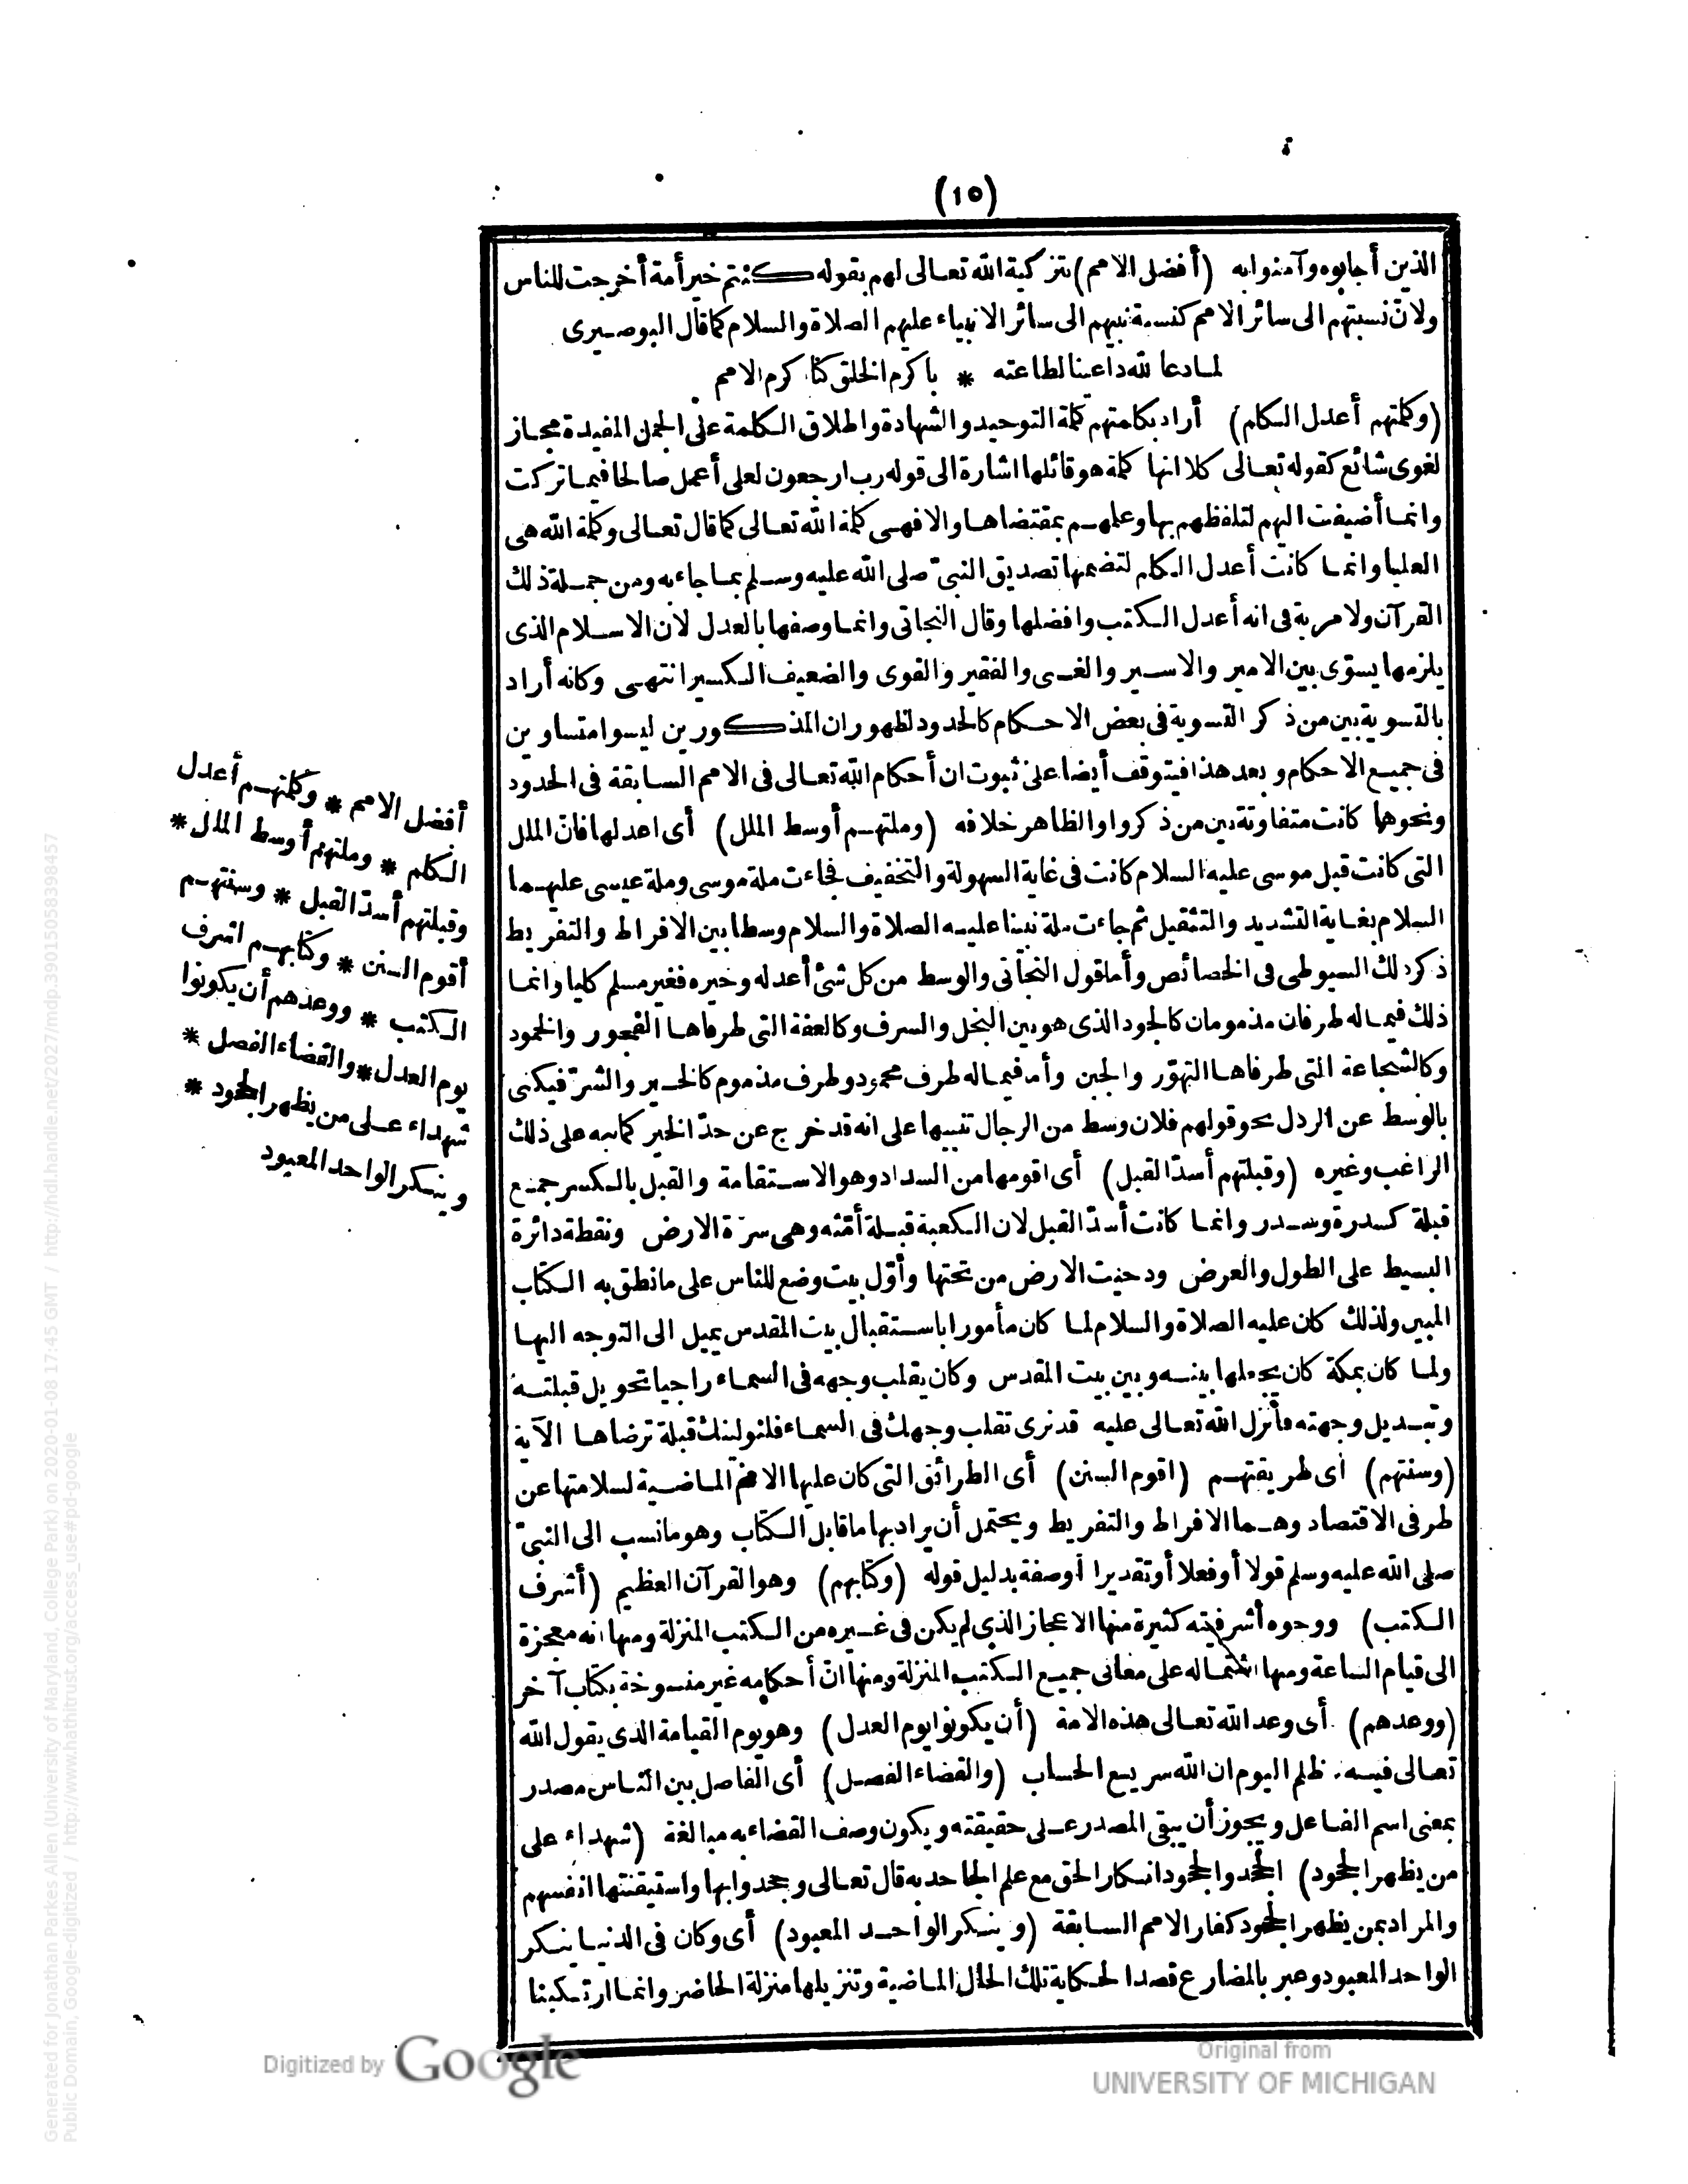 (١٥)
الذين أجابوه وآمنوا به (أفضل الامم) بتزكية الله تعالى لهم بقوله كنتم خير أمة أخرجت للناس
ولانّ نسبتهم الى سائر الامم كنسبة نبيهم الى سائر الانبياء عليهم الصلاة والسلام كما قال البوصيرى
لما دعا لله داعينا لطاعته * باكرم الخلق كنا كرم الامم
(وكلمتهم أعدل الكلم) أراد بكلمتهم كلمة التوحيد والشهادة واطلاق الكلمة على الجمل المفيدة مجاز
لغوى شائع كقوله تعالى كلا انها كلمة هو قائلها اشارة الى قوله رب ارجعون لعلى أعمل صالحا فيما تركت
وانما أضيفت اليهم لتلفظهم بها وعلمهم بمقتضاها والا فهى كلمة الله تعالى كما قال تعالى وكلمة الله هى
العليا وانما كانت أعدل الكلم لتضمنها تصديق النبىّ صلى الله عليه وسلم بما جاء به ومن جملة ذلك
القرآن ولا مرية فى انه أعدل الكتب وافضلها وقال النجاتى وانما وصفها بالعدل لان الاسلام الذى
يلزمها يسوّى بين الامير والاسير والغنى والفقير والقوى والضعيف الكسير انتهى وكانه أراد
بالتسوية بين من ذكر التسوية فى بعض الاحكام كالحدود لظهور ان المذكورين ليسوا متساوين
فى جميع الاحكام وبعد هذا فيتوقف أيضا على ثبوت ان أحكام الله تعالى فى الامم السابقة فى الحدود
ونحوها كانت متفاوتة بين من ذكروا والظاهر خلافه (وملتهم أوسط الملل) أى اعدلها فانّ الملل
التى كانت قبل موسى عليه السلام كانت فى غاية السهولة والتخفيف فجاءت ملة موسى وملة عيسى عليهما
السلام بغاية التشديد والتثقيل ثم جاءت ملة نبينا عليه الصلاة والسلام وسطا بين الافراط والتفريط
ذكر ذلك السيوطى فى الخصائص وأما قول النجاتى والوسط من كل شئ أعدله وخيره فغير مسلم كليا وانما
ذلك فيما له طرفان مذمومان كالجود الذى هو بين البخل والسرف وكالعفة التى طرفاها الفجور والخمود
وكالشجاعة التى طرفاها التهوّر والجبن وأما فيما له طرف محمود وطرف مذموم كالخير والشرّ فيكنى
بالوسط عن الرذل نحو قولهم فلان وسط من الرجال تنبيها على انه قد خرج عن حدّ الخير كما نبه على ذلك
الراغب وغيره (وقبلتهم أسدّ القبل) أى اقومها من السداد وهو الاستقامة والقبل بالكسر جمع
قبلة كسدرة وسدر وانما كانت أسدّ القبل لان الكعبة قبلة أمّته وهى سرّة الارض ونقطة دائرة
البسيط على الطول والعرض ودحيت الارض من تحتها وأوّل بيت وضع للناس على ما نطق به الكتاب
المبين ولذلك كان عليه الصلاة والسلام لما كان مأمورا باستقبال بيت المقدس يميل الى التوجه اليها
ولما كان بمكة كان يجعلها بينه وبين بيت المقدس وكان يقلب وجهه فى السماء راجيا تحويل قبلته
وتبديل وجهته فأنزل الله تعالى عليه قد نرى تقلب وجهك فى السماء فلنولينك قبلة ترضاها الآية
(وسنتهم) أى طريقتهم (اقوم السنن) أى الطرائق التى كان عليها الامم الماضية لسلامتها عن
طرفى الاقتصاد وهما الافراط والتفريط ويحتمل أن يراد بها ما قابل الكتاب وهو ما نسب الى النبىّ
صلى الله عليه وسلم قولا أو فعلا أو تقديرا أو صفة بدليل قوله (وكتابهم) وهو القرآن العظيم (أشرف
الكتب) ووجوه أشرفيته كثيرة منها الاعجاز الذى لم يكن فى غيره من الكتب المنزلة ومنها انه معجزة
الى قيام الساعة ومنها اشتماله على معانى جميع الكتب المنزلة ومنها انّ أحكامه غير منسوخة بكتاب آخر
(ووعدهم) أى وعد الله تعالى هذه الامة (أن يكونوا يوم العدل) وهو يوم القيامة الذى يقول الله
تعالى فيه. ظلم اليوم ان الله سريع الحساب (والقضاء الفصل) أى الفاصل بين الناس مصدر
بمعنى اسم الفاعل ويجوز أن يبقى المصدر على حقيقته ويكون وصف القضاء به مبالغة (شهداء على
من يظهر الجحود) الجحد والجحود انكار الحق مع علم الجاحد به قال تعالى وجحدوا بها واستيقنتها انفسهم
والمراد بمن يظهر الجحود كفار الامم السابقة (وينكر الواحد المعبود) أى وكان فى الدنيا ينكر
الواحد المعبود وعبر بالمضارع قصدا لحكاية تلك الحال الماضية وتنزيلها منزلة الحاضر وانما ارتكبنا
أفضل الامم * وكلمتهم أعدل
الكلم * وملتهم أوسط الملل *
وقبلتهم أسدّ القبل * وسنتهم
أقوم السنن * وكتابهم اشرف
الكتب * ووعدهم أن يكونوا
يوم العدل * والقضاء الفصل *
شهداء على من يظهر الجحود *
وينكر الواحد المعبود
Generated for Jonathan Parkes Allen (University of Maryland, College Park) on 2020-01-08 17:45 GMT / http://hdl.handle.net/2027/mdp.39015058398457
Public Domain, Google-digitized / http://www.hathitrust.org/access_use#pd-google
Digitized by Google
Original from
UNIVERSITY OF MICHIGAN